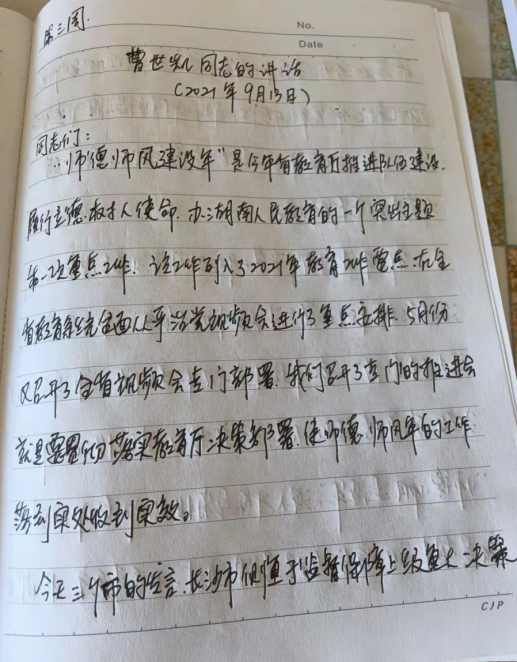 第三周
No.
Date
曹世凯同志的讲话
(2021年9月13日)
同志们：
"师德师风建设年"是今年省教育厅推进队伍建设、
履行立德树人使命、办湖南人民教育的一个突出主题
和一次重点工作，该工作列入了2021年教育工作重点，在全
省教育系统全面从严治党视频会进行了重点安排，5月份
又召开了全省视频会专门部署，我们召开了专门的推进会
就是要贯彻落实教育厅决策部署，使师德师风年的工作
落到实处收到实效。
今天三个市的发言，长沙市侧重于监督保障上级重大决策
CJP